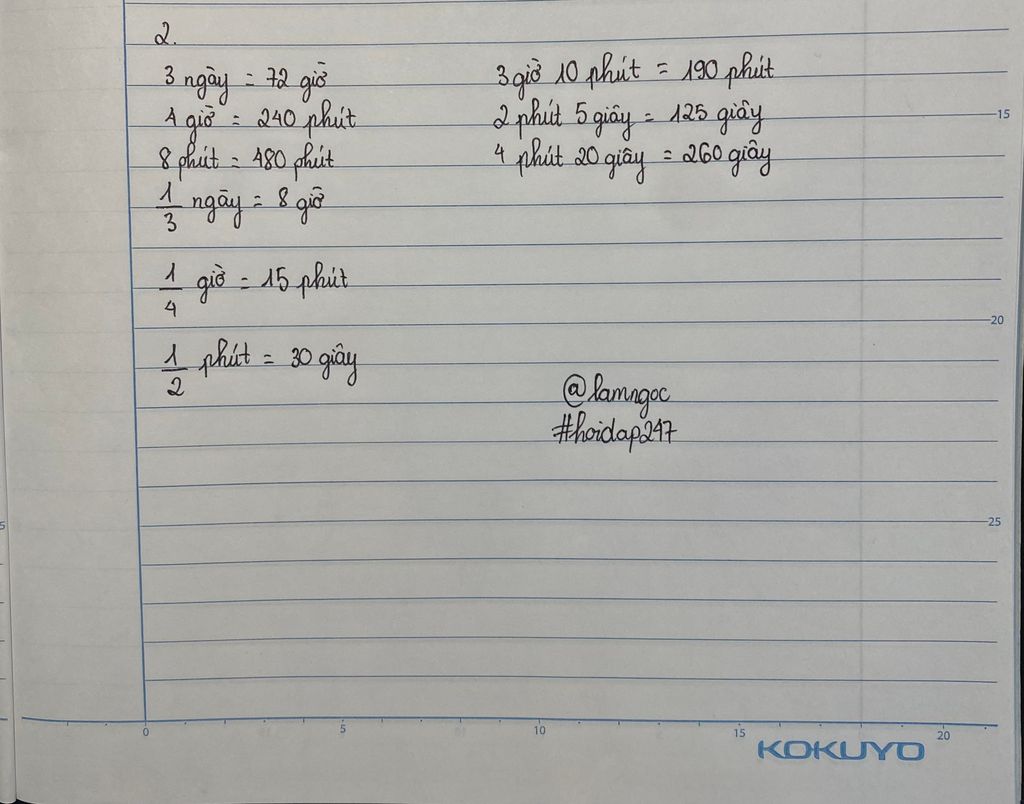 2.
3 ngày = 72 giờ
4 giờ = 240 phút
8 phút = 480 phút
1/3 ngày = 8 giờ
1/4 giờ = 15 phút
1/2 phút = 30 giây
3 giờ 10 phút = 190 phút
2 phút 5 giây = 125 giây
4 phút 20 giây = 260 giây
@lamngoc
#hoidap247
15
20
25
5
0 5 10 15 20
KOKUYO